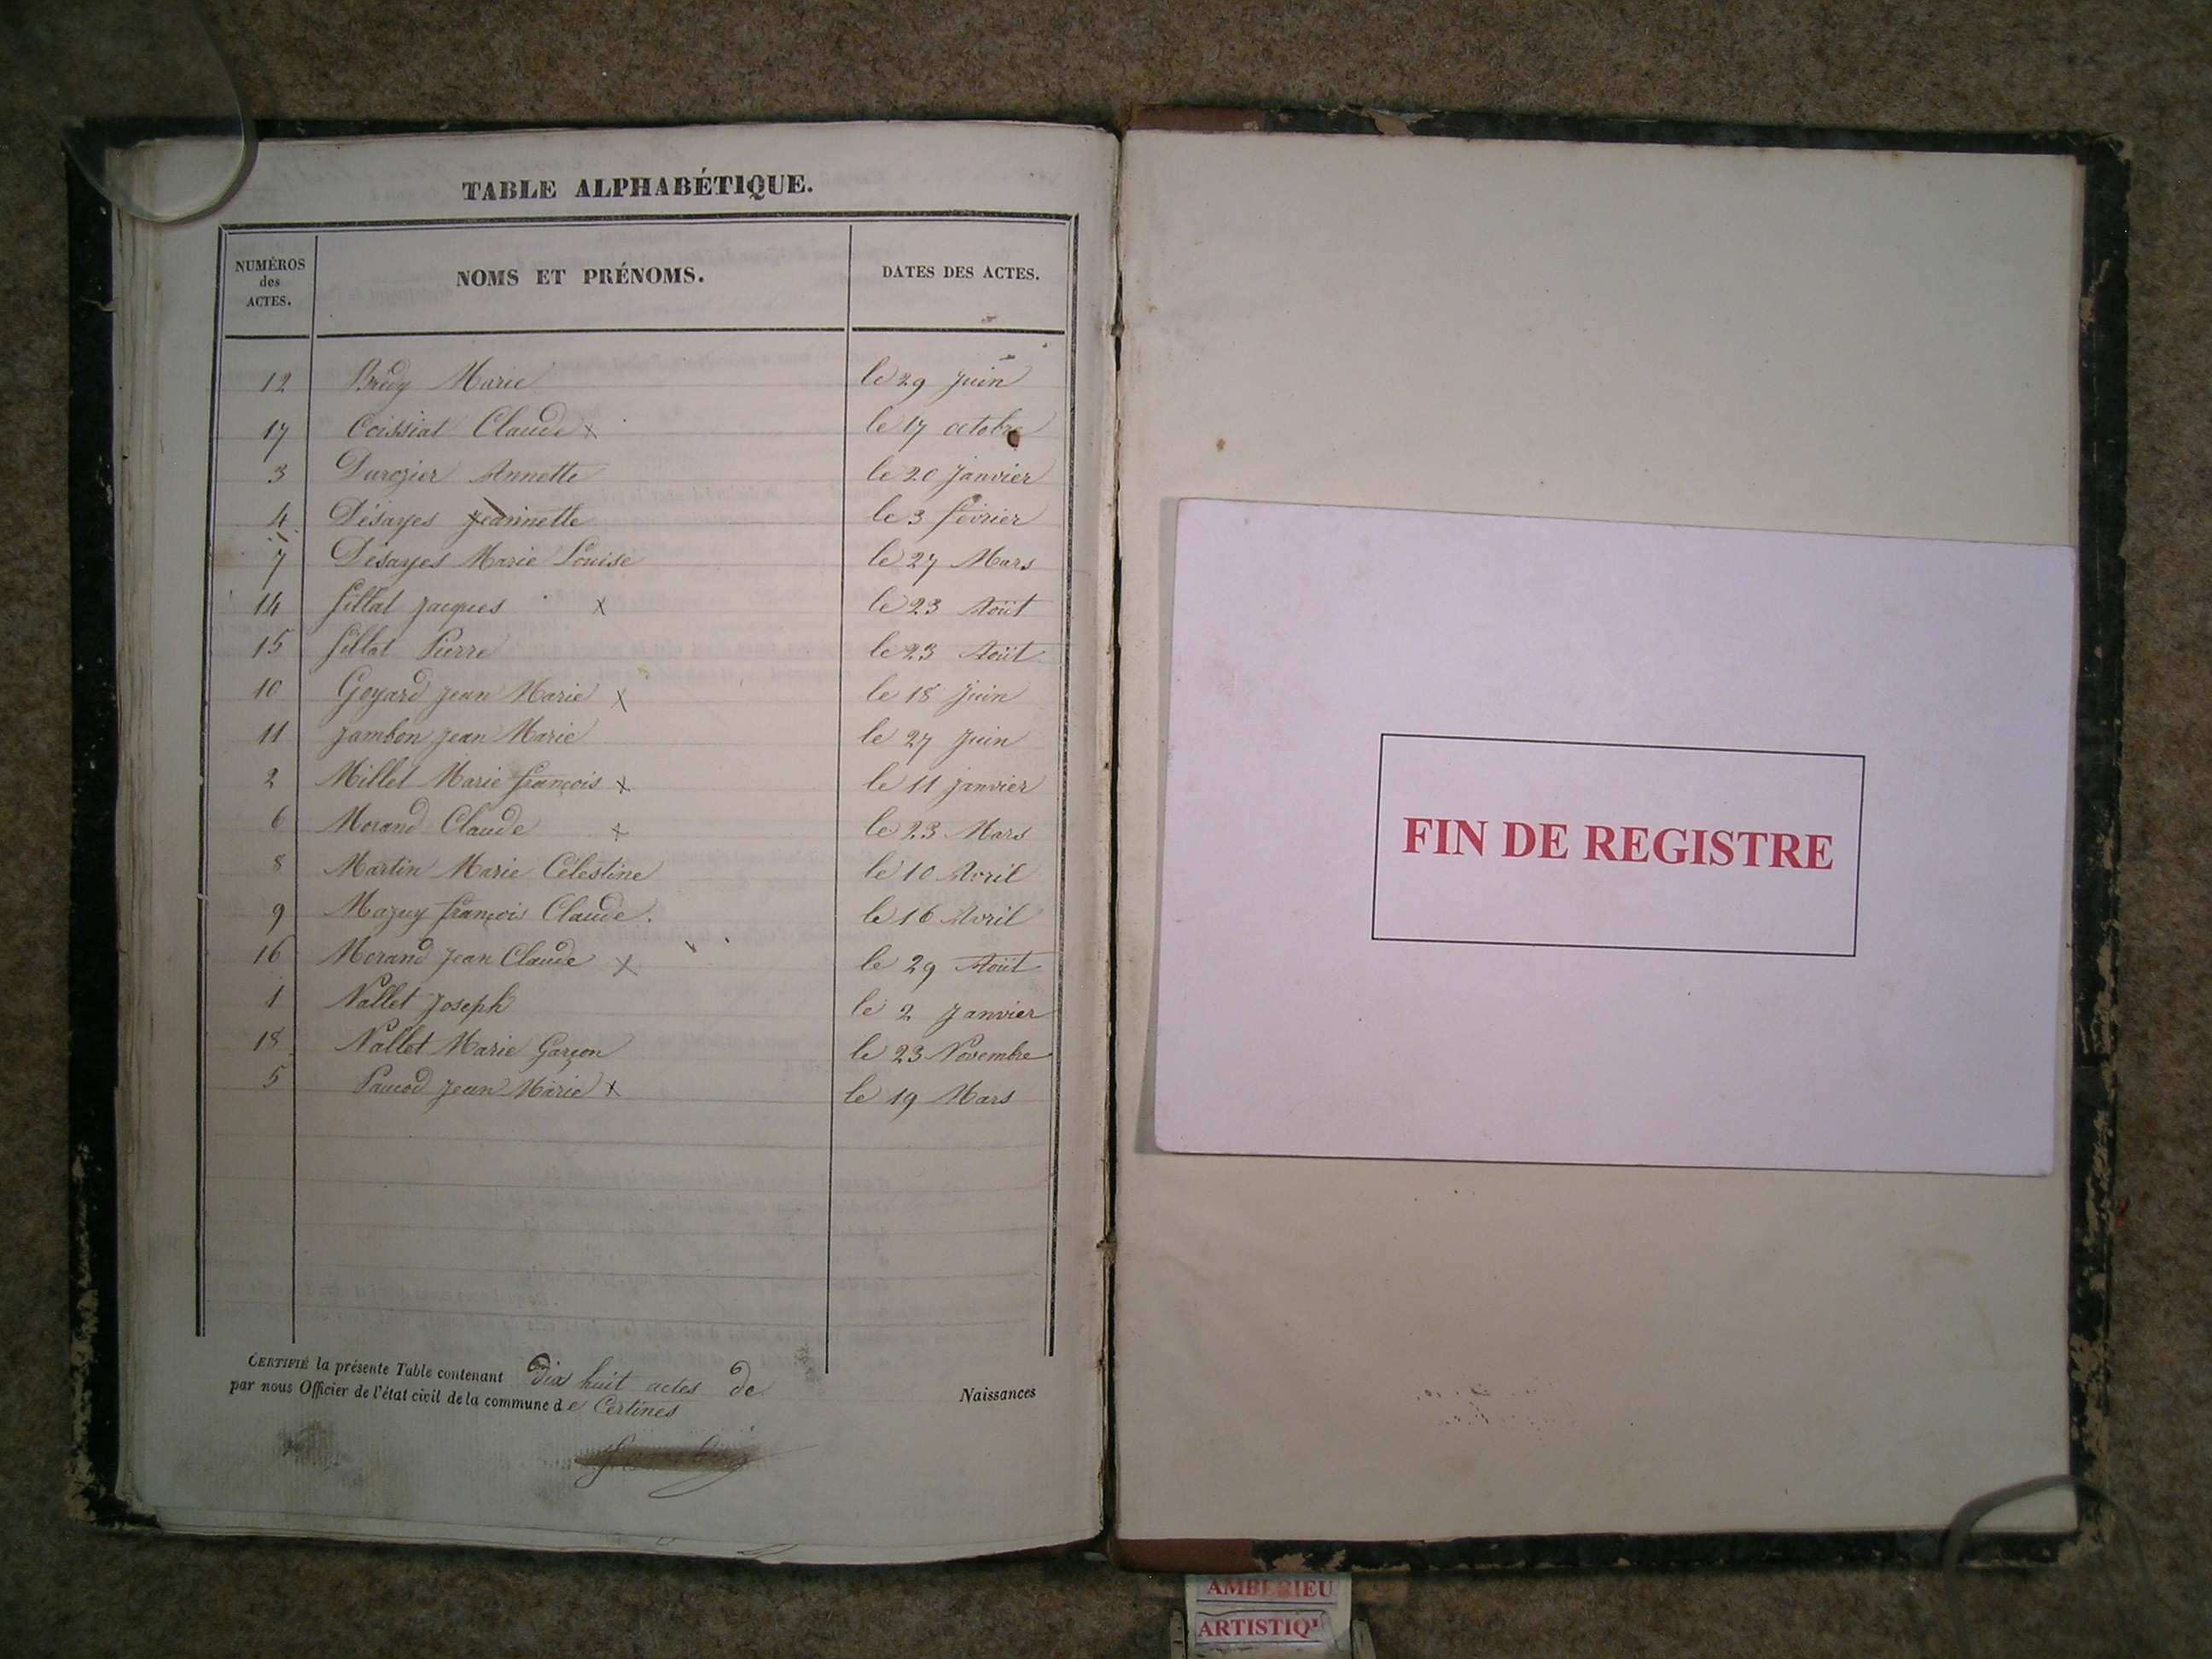 TABLE ALPHABÉTIQUE.
NUMÉROS des ACTES. NOMS ET PRÉNOMS. DATES DES ACTES.
12 Marie le 29 Juin
17 Coissiat Claude x le 17 octobre
3 Durozier Annette le 20 Janvier
4 Désayes Jeannette le 3 février
7 Désayes Marie Louise le 27 Mars
14 fillat Jacques x le 23 Août
15 fillat Pierre le 23 Août
10 Goyard Jean Marie x le 18 Juin
11 Jambon Jean Marie le 27 Juin
2 Millet Marie françois x le 11 Janvier
6 Morand Claude x le 23 Mars
8 Martin Marie Célestine le 10 Avril
9 Mazuy françois Claude. le 16 Avril
16 Morand Jean Claude x le 29 Août
1 Nallet Joseph le 2 Janvier
18 Nallet Marie Garçon le 23 Novembre
5 Paucod Jean Marie x le 19 Mars
CERTIFIÉ la présente Table contenant Dix huit actes de Naissances
par nous Officier de l'état civil de la commune de Certines
FIN DE REGISTRE
AMBERIEU
ARTISTIQ